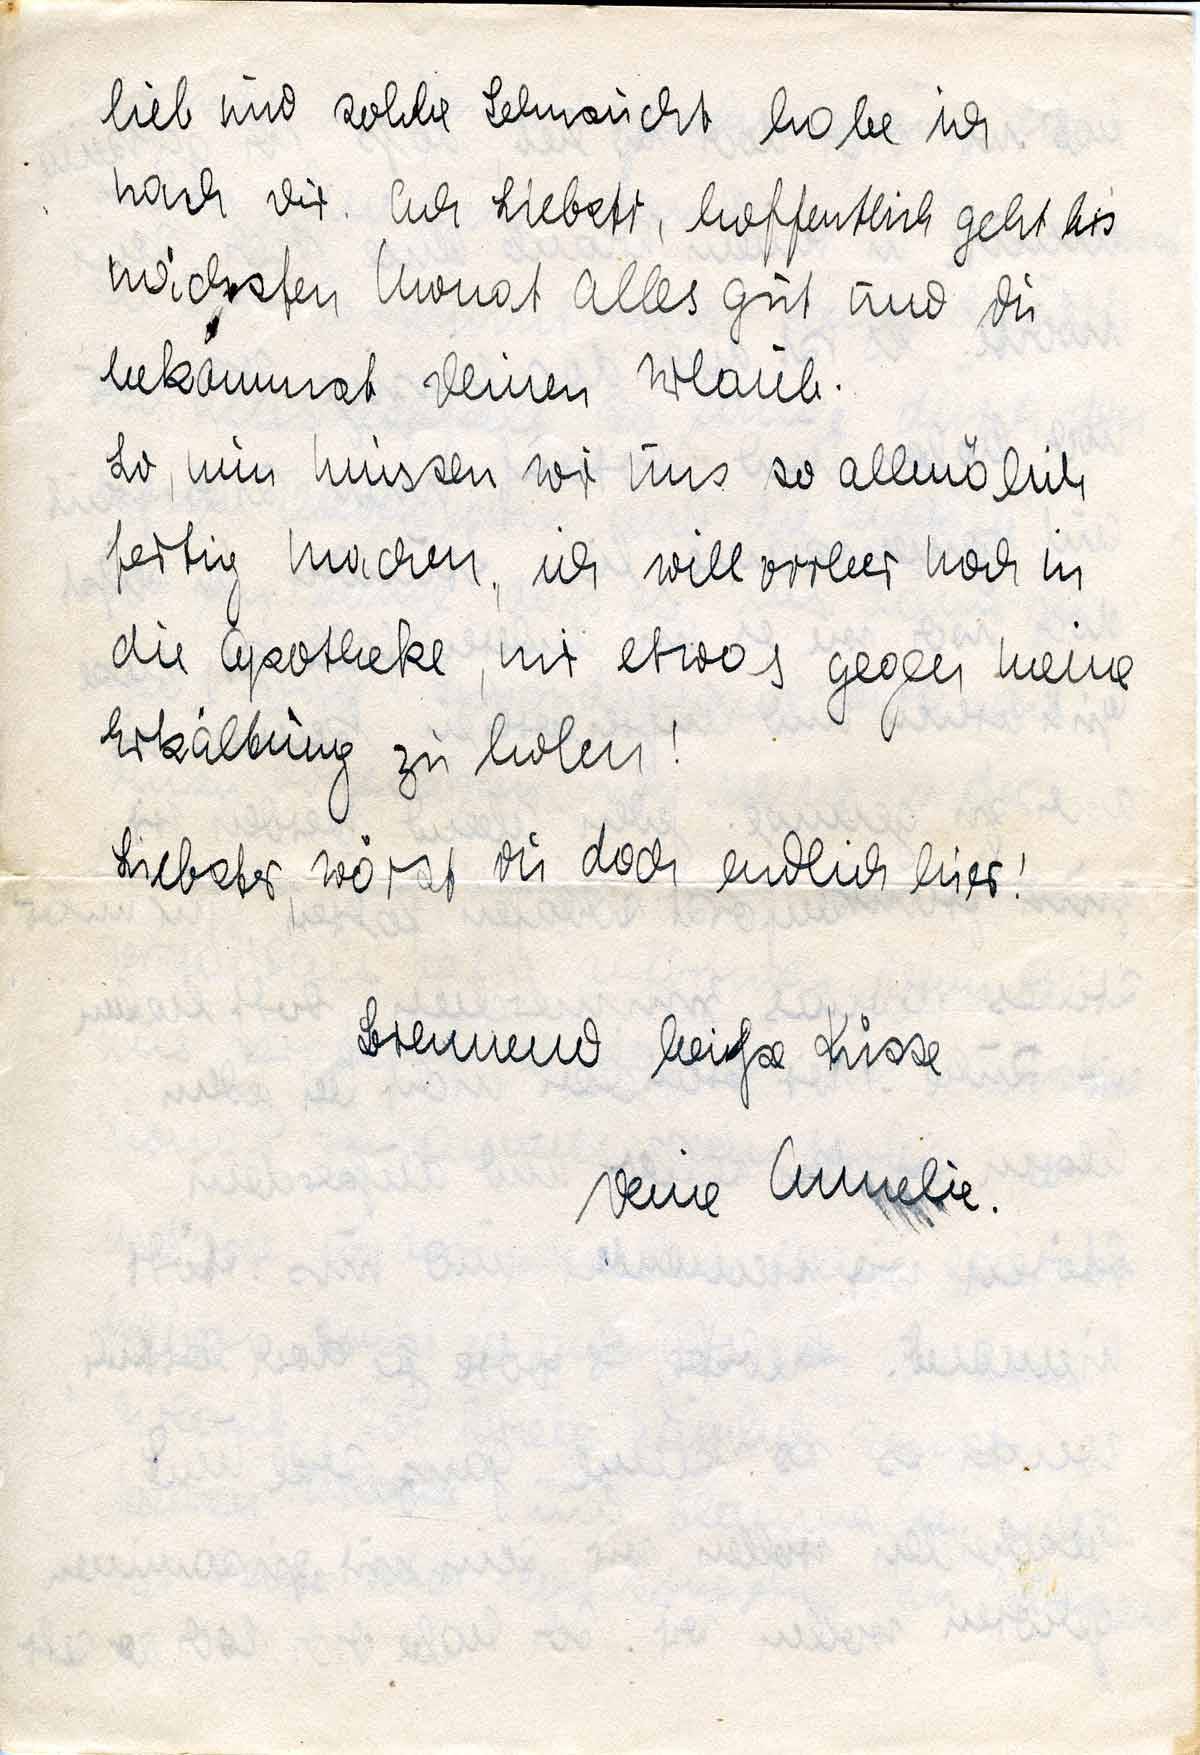 lieb und solche Sehnsucht habe ich
nach Dir. Ach Liebster, hoffentlich geht bis
nächsten Monat alles gut und Du
bekommst Deinen Urlaub.
So, nun müssen wir uns so allmählich
fertig machen, ich will vorher noch in
die Apotheke, mir etwas gegen meine
Erkältung zu holen!
Liebster, wärst Du doch endlich hier!
Brennend heiße Küsse
Deine Annelie.